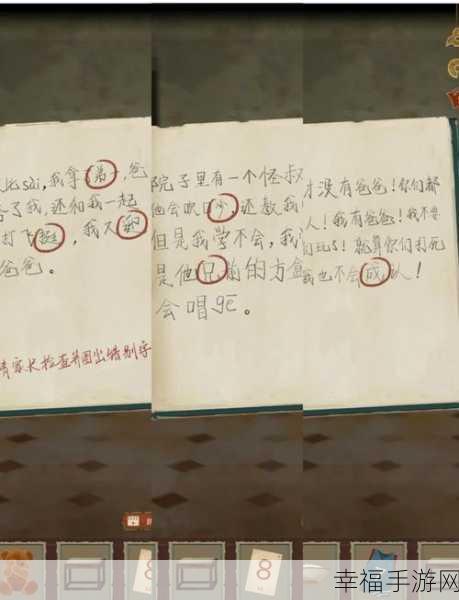 比sài,我拿弟一,爸
了我,还和我一起
打飞挺,我
爸爸。
请家长检查并圈出错别字
院子里有一个怪叔
他会吹口少,还教我
但是我学不会,我
是他兄前的方盒
会唱gē。
才没有爸爸!你们都
人!我有爸爸!我不要
们玩了!就算你们打死
我也不会成认!
8
8
幸福手游网